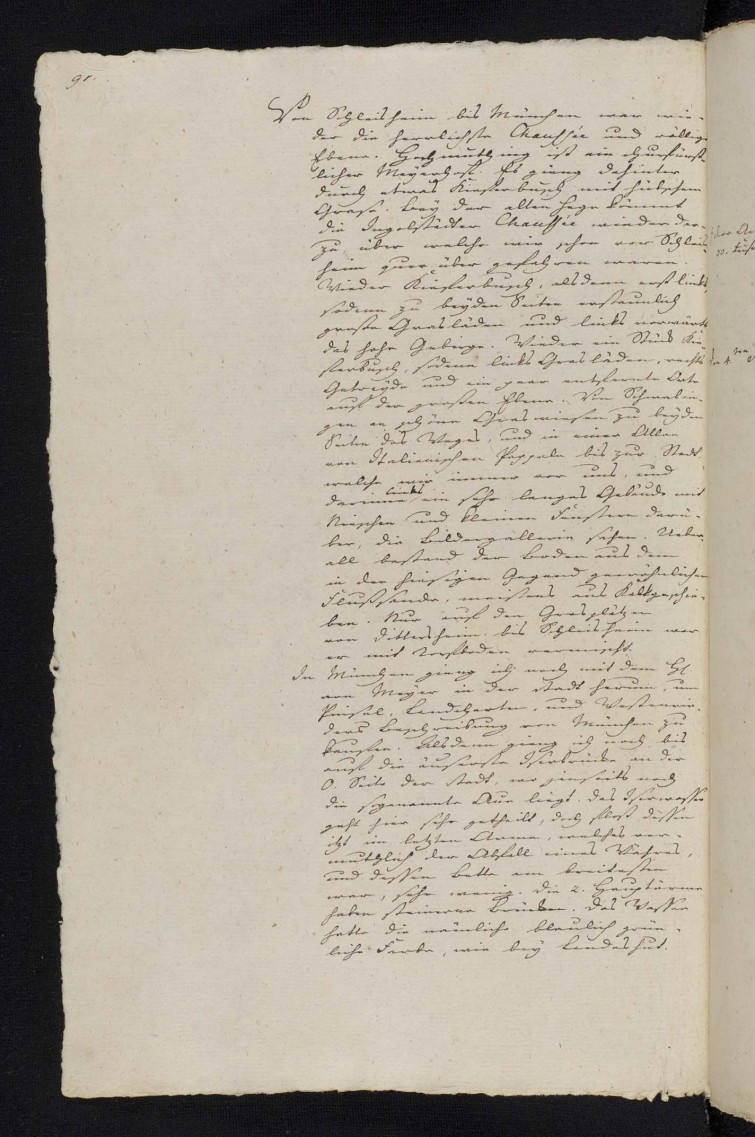 91.
Von Schleisheim bis München war wie-
der die herrlichste Chaussée und völlige
Ebene. Hochmutting ist ein Churfürst-
licher Meyerhof. Es gieng dahinter
durch etwas Kiefferbusch mit hübschem
Grase. Bey der alten Hege kömmt
die Ingolstädter Chaussée wieder da-
zu über welche wir schon vor Schleis-
heim quer über gefahren waren.
Wieder Kiefferbusch, alsdenn erst links,
sodenn zu beyden Seiten erstaunlich
grosse Grasläden und links vorwärts
das hohe Gebirge. Wieder ein Stück Kie-
fferbusch, sodenn links Grasläden, rechts
Getreyde und ein paar entfernte Orte
auf der grossen Ebene. Von Schwabin-
gen an schöne Graswiesen zu beyden
Seiten des Weges, und in einer Allee
von Italienischen Pappeln bis zur Stadt
welche wir immer vor uns, und
darinne links ein sehr langes Gebäude mit
Nieschen und kleinen Fenstern darü-
ber, die Bildergallerie sahen. Ueber-
all bestand der Boden aus dem
in der hiesigen Gegend gewöhnlichen
Flußsande, meistens aus Kalkgeschie-
ben. Nur auf den Grasplätzen
von Dittersheim bis Schleisheim war
er mit Torfboden vermischt.
In München gieng ich noch mit dem H.
von Meyer in der Stadt herum, um
Pinsel, Landcharten, und Westenrie-
ders Beschreibung von München zu
kauffen. Alsdenn gieng ich noch bis
auf die äusserste Iserbrücke an der
O. Seite der Stadt, wo jenseits noch
die sogenannte Aue liegt. Das Iserwasser
geht hier sehr getheilt, doch floß dessen
itzt im letzten Arme, welches ver-
muthlich der Abfall eines Wehres,
und dessen Bette am breitesten
war, sehr wenig. Die 2. Hauptärme
haben steinerne Brücken. Das Wasser
hatte die nämliche blaulich grün-
liche Farbe, wie bey Landshut.